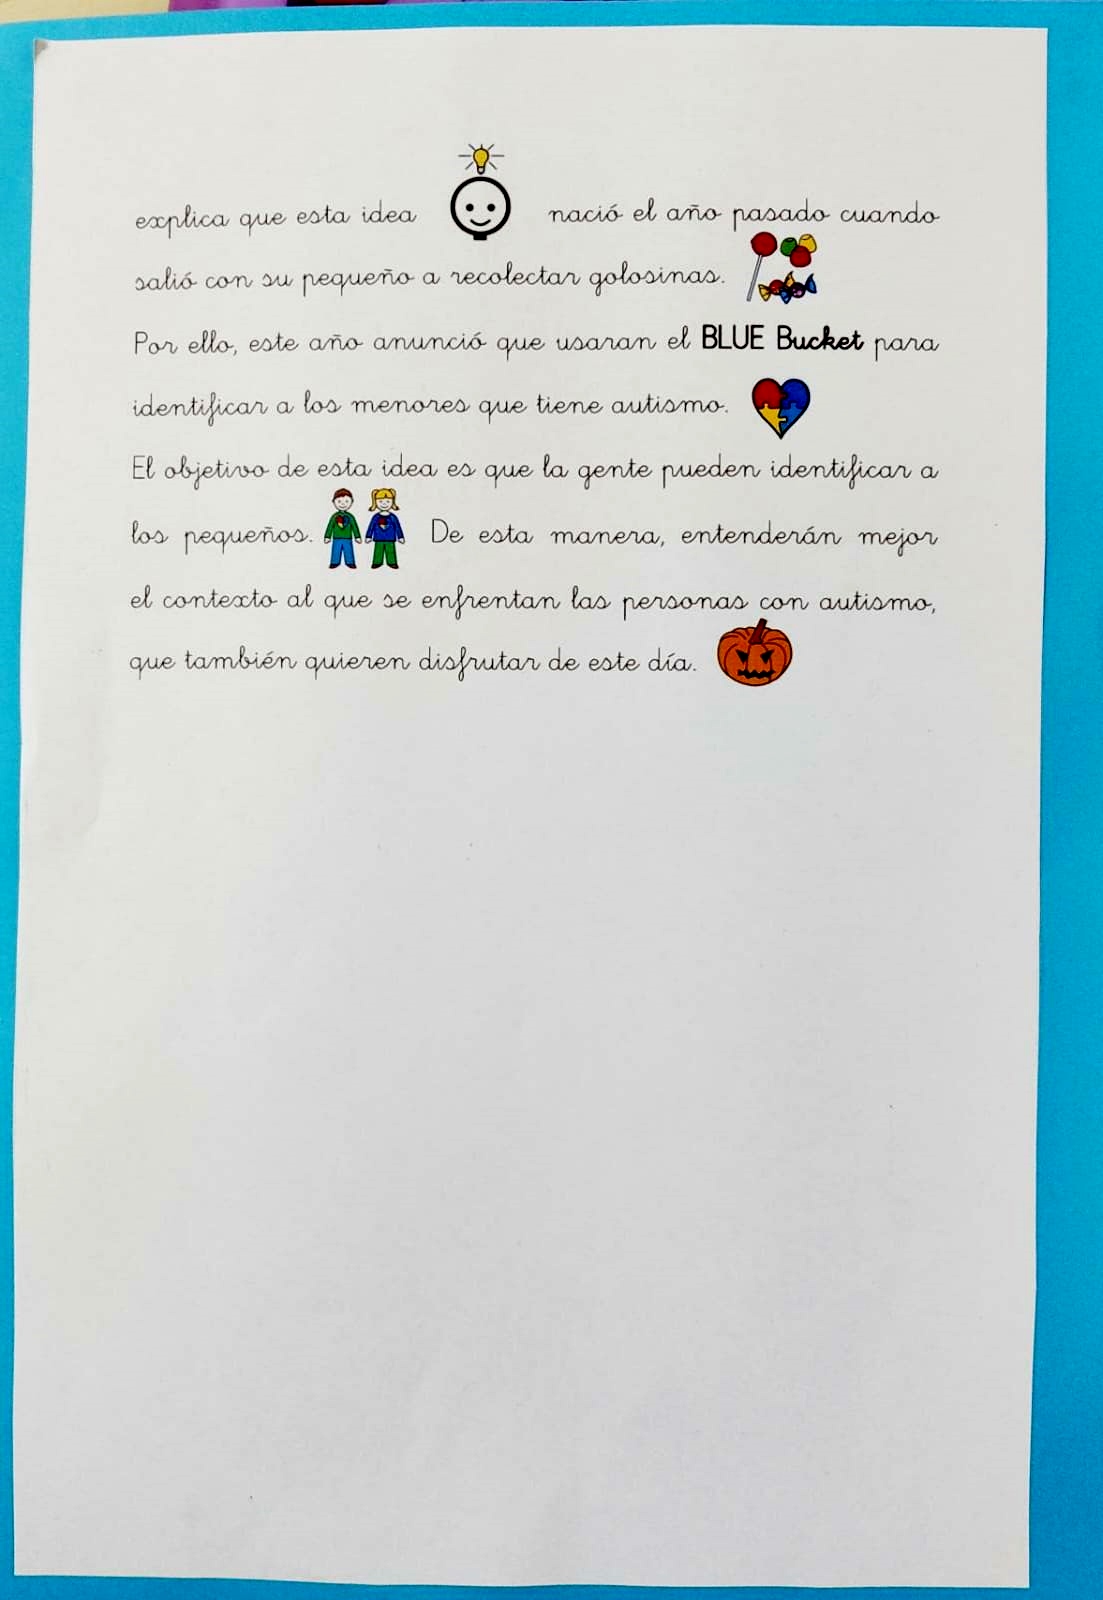 explica que esta idea nació el año pasado cuando
salió con su pequeño a recolectar golosinas.
Por ello, este año anunció que usaran el BLUE Bucket para
identificar a los menores que tiene autismo.
El objetivo de esta idea es que la gente pueden identificar a
los pequeños. De esta manera, entenderán mejor
el contexto al que se enfrentan las personas con autismo,
que también quieren disfrutar de este día.